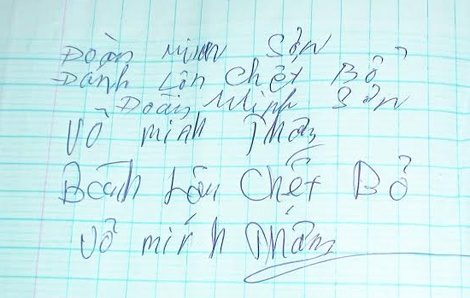 Đoàn Minh Sơn
Đánh Lộn Chết Bỏ
Đoàn Minh Sơn
Võ minh Thấm
Lộn Chết Bỏ
Võ minh Thấm